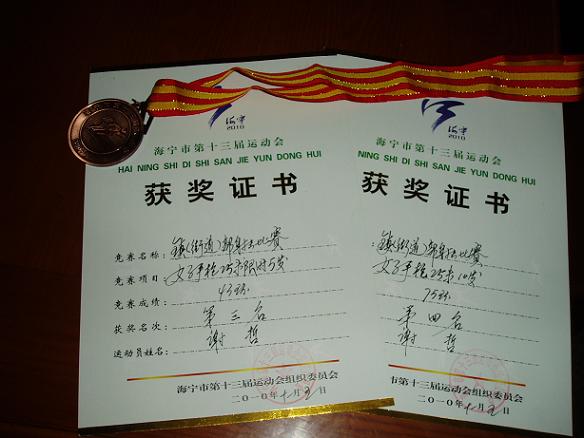 海宁
2010
海宁市第十三届运动会
HAI NING SHI DI SHI SAN JIE YUN DONG HUI
获奖证书
竞赛名称：镇(街道)部射击比赛
竞赛项目：女子手枪25米限时5发
竞赛成绩：43环
获奖名次：第三名
运动员姓名：谢哲
海宁市第十三届运动会组织委员会
二〇一〇年
海宁
2010
海宁市第十三届运动会
NING SHI DI SHI SAN JIE YUN DONG HUI
获奖证书
镇(街道)部射击比赛
女子手枪25米10发
75环
第四名
谢哲
市第十三届运动会组织委员会
二〇一〇年